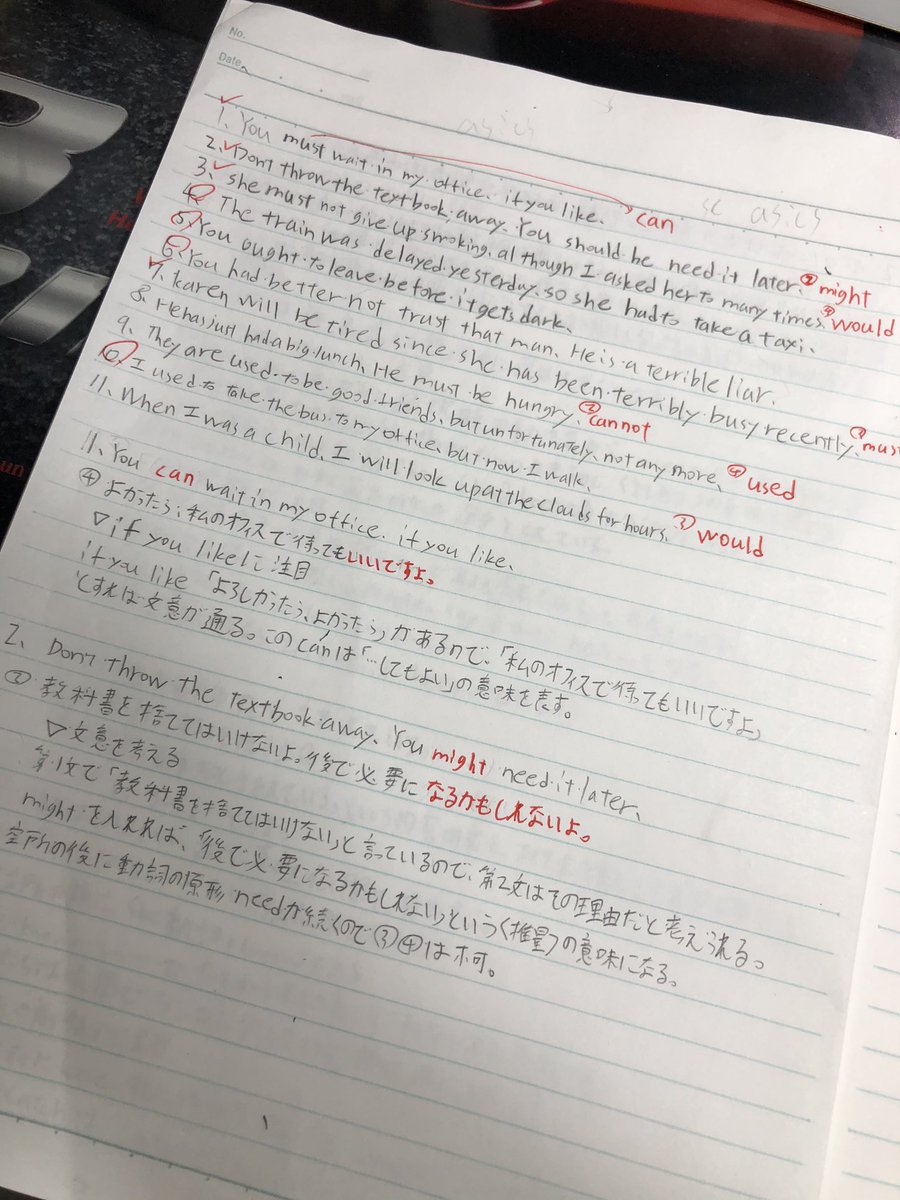 No.
Date
asics
asics
1. You must wait in my office. if you like. can
2. Don't throw the textbook away. You should be need it later. ② might
3. she must not give up smoking. al though I asked her to many times. ④ would
4. The train was delayed yesterday. so she had to take a taxi.
5. You ought to leave before it gets dark.
6. You had better not trust that man. He is a terrible liar.
7. karen will be tired since she has been terribly busy recently. ① must
8. He has just had a big lunch. He must be hungry. ② cannot
9. They are used to be good friends. but unfortunately. not any more. ④ used
10. I used to take the bus to my office. but now I walk.
11. When I was a child. I will look up at the clouds for hours. ③ would
11. You can wait in my office. if you like.
④ よかったら、私のオフィスで待ってもいいですよ。
▽if you likeに注目
if you like 「よろしかったら、よかったら」があるので、「私のオフィスで待ってもいいですよ」
とすれば文意が通る。このcanは「…してもよい」の意味を表す。
2. Don't throw the textbook away. You might need it later.
② 教科書を捨ててはいけないよ。後で必要になるかもしれないよ。
▽文意を考える
第1文で「教科書を捨ててはいけない」と言っているので、第2文はその理由だと考えられる。
mightを入れれば、「後で必要になるかもしれない」という〈推量〉の意味になる。
空所の後に動詞の原形needが続くので③④は不可。